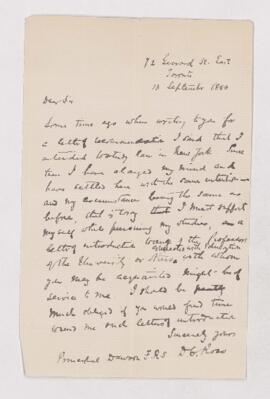 72 Gerrard St. East
Toronto
13 September 1880
Dear Sir
Some time ago when writing to you for
a letter of recommendation I said that I
intended to study law in New York. Since
then I have changed my mind and
have settled here with the same intention
and my circumstances being the same as
before, that is to say that I must support
myself while pursuing my studies, a
letter of introduction to any of the Professors
of the University or others with whom
you may be acquainted might be of
service to me. I should be
much obliged if you would find time
to send me such letter of introduction
Sincerely yours
Principal Dawson F.R.S. D. C. Ross